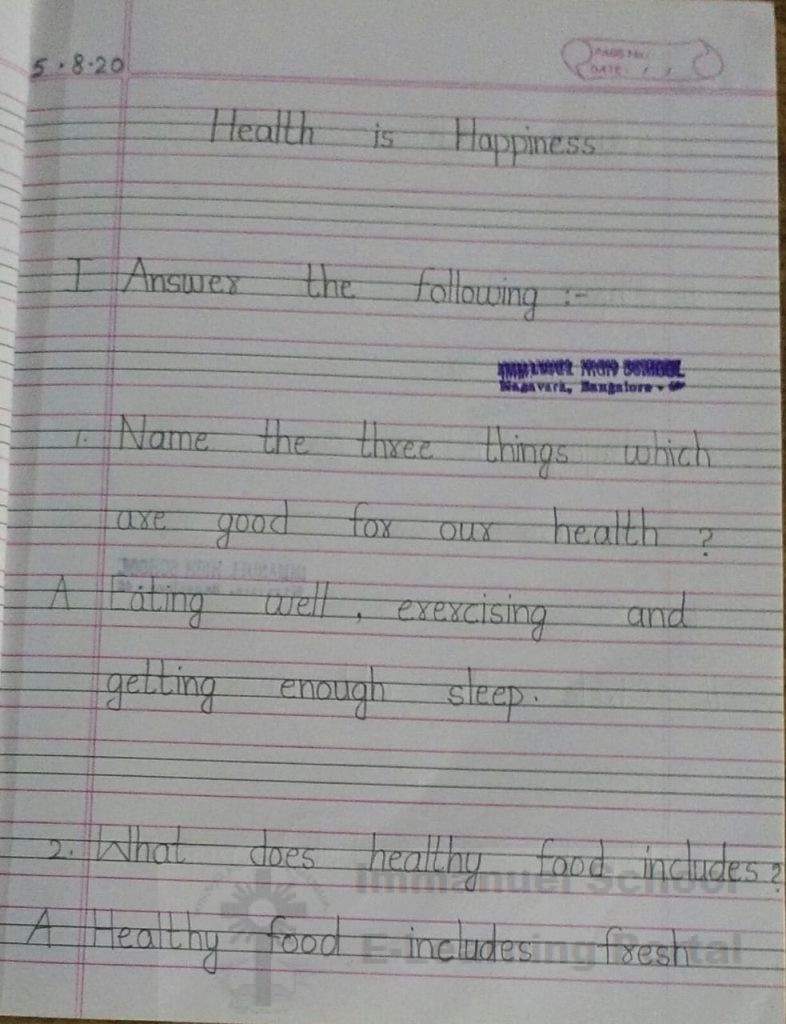 PAGE No.
5.8.20
DATE: / /
Health is Happiness
I Answer the following :-
IMMANUEL HIGH SCHOOL
Nagavara, Bangalore -
1. Name the three things which
are good for our health ?
A Eating well, exercising and
getting enough sleep.
2. What does healthy food includes ?
Immanuel School
A Healthy food includes fresh